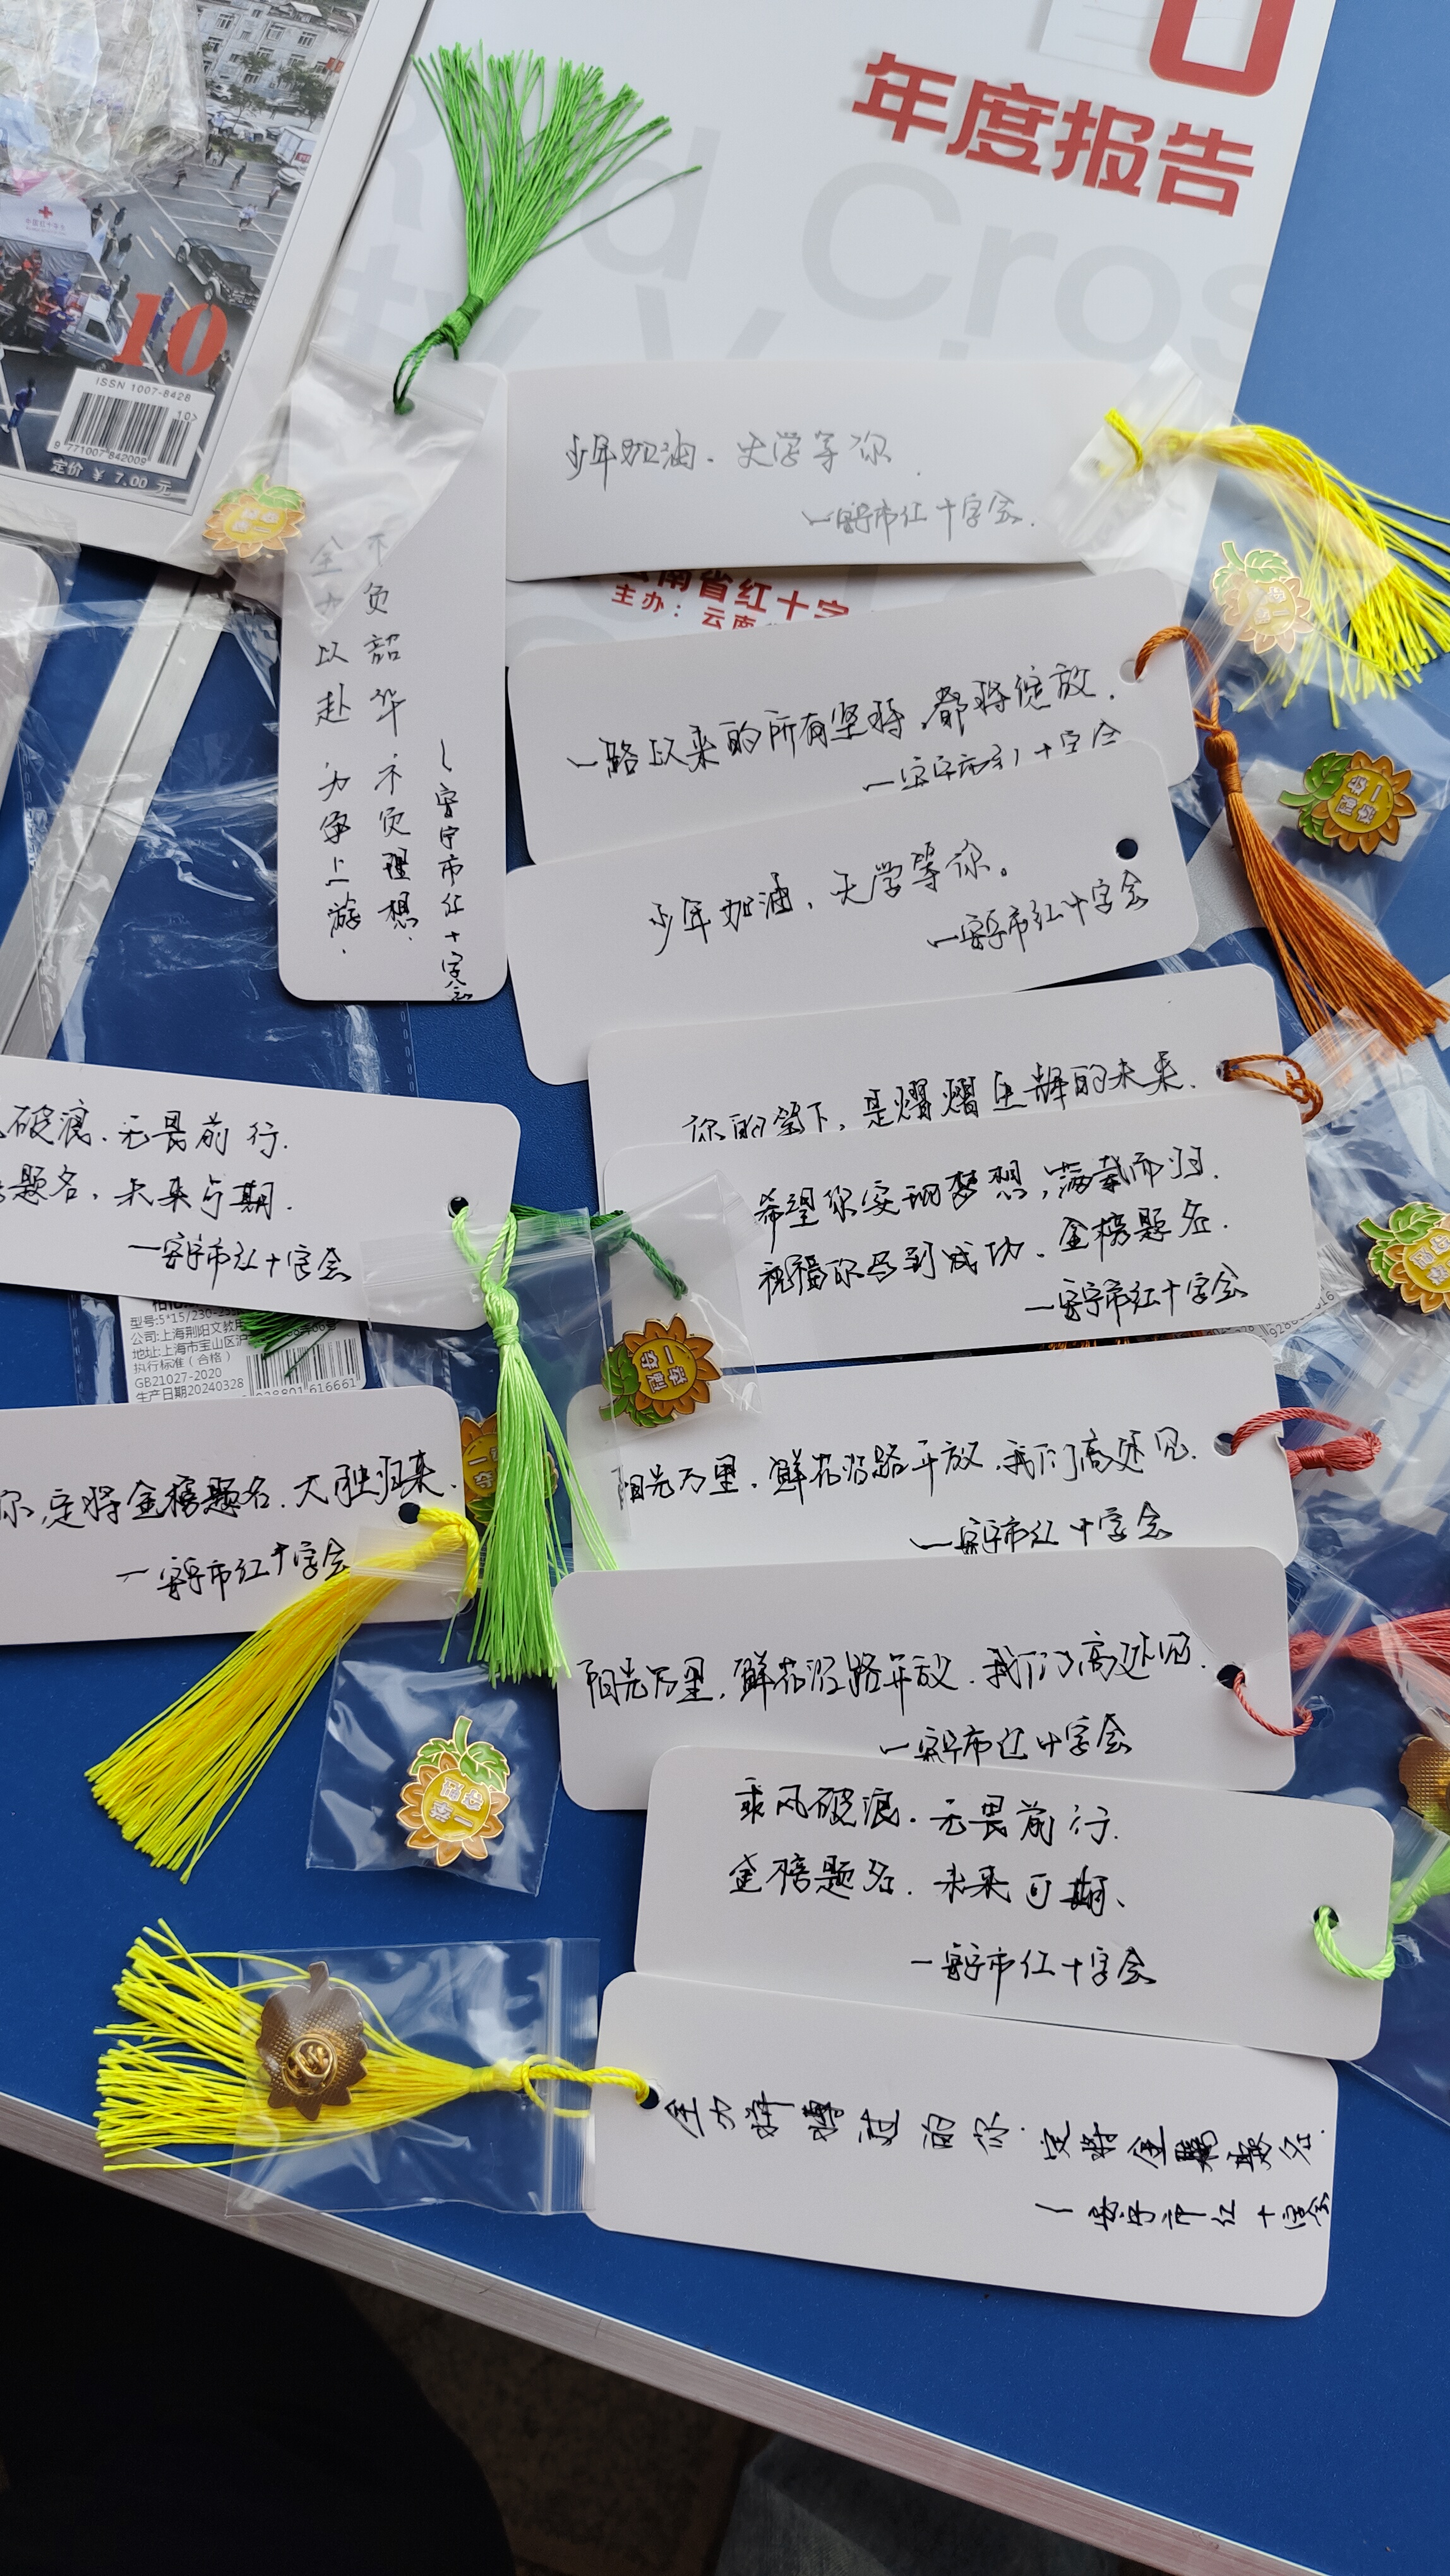 年度报告
Red Cross
10
ISSN 1007-8428
10>
9 771007 842009
定价 ¥ 7.00 元
少年加油、大学等你.
一安宁市红十字会.
云南省红十字
主办：云南
不负韶华 不负理想.
全力以赴 力争上游.
一安宁市红十字会
一路以来的所有坚持,都将绽放.
一安宁市红十字会
少年加油,大学等你。
一安宁市红十字会
你的笔下,是熠熠生辉的未来.
希望你实现梦想,满载而归.
祝福你马到成功、金榜题名.
一安宁市红十字会
破浪、无畏前行.
题名、未来可期.
一安宁市红十字会
型号:5*15/230-
公司:上海荆阳文教用
地址:上海市宝山区沪
执行标准（合格）
GB21027-2020
生产日期20240328
928801 616661
一举夺魁
你,定将金榜题名、大胜归来.
一安宁市红十字会
阳光万里,鲜花沿路开放,我们高处见.
一安宁市红十字会
阳光万里,鲜花沿路开放,我们高处见.
一安宁市红十字会
乘风破浪、无畏前行.
金榜题名、未来可期、
一安宁市红十字会
全力拼搏过的你.定将金榜题名.
一安宁市红十字会